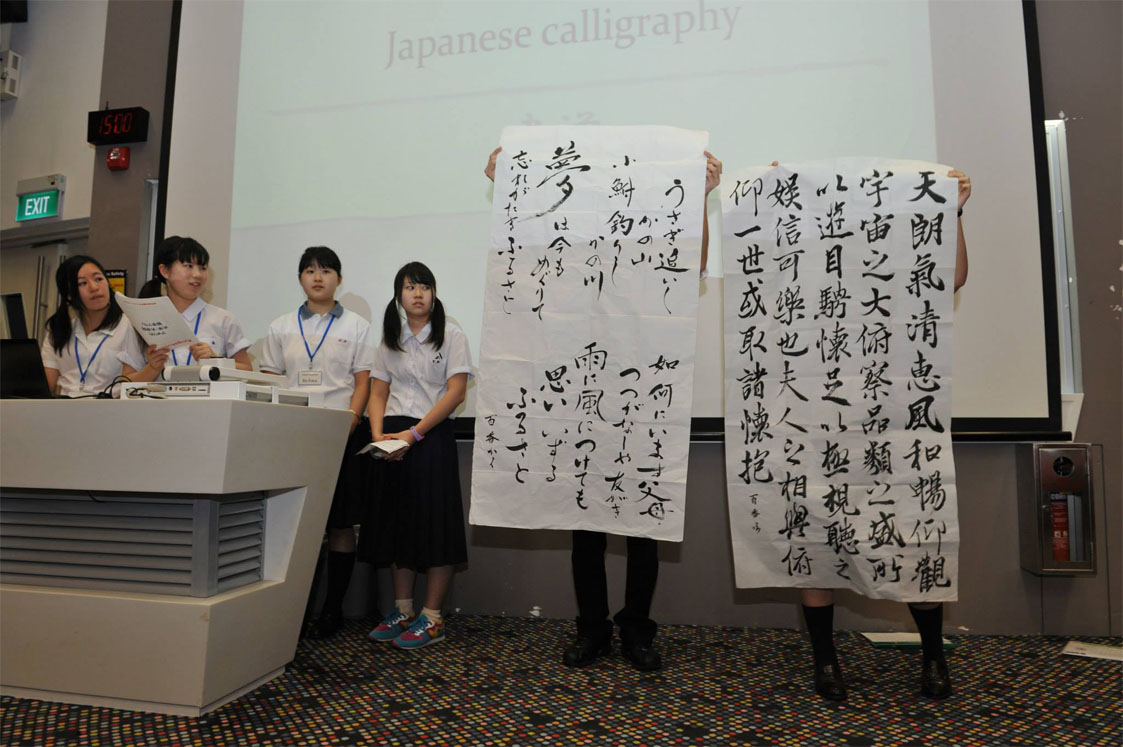 Japanese calligraphy
EXIT
うさぎ追いし
かの山
小鮒釣りし
かの川
夢は今も
めぐりて
忘れがたきふるさと
如何にいます父母
つつがなしや友がき
雨に風につけても
思いいずる
ふるさと
百香かく
天朗氣清恵風和暢仰觀
宇宙之大俯察品類之盛所
以遊目騁懐足以極視聽之
娯信可樂也夫人之相與俯
仰一世或取諸懐抱